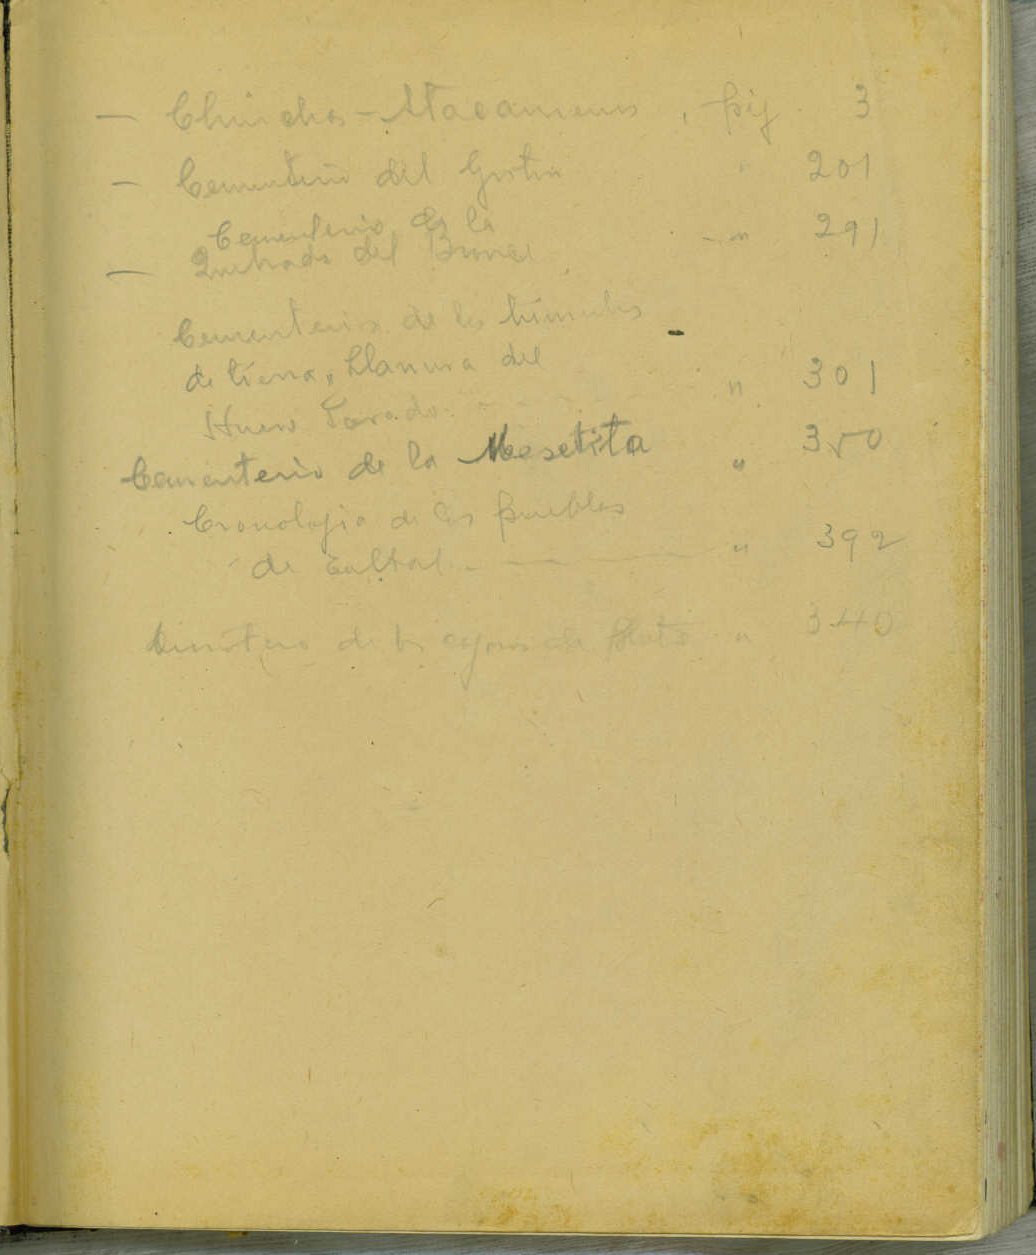 — Chinchas-Atacameños, pág 3
— Cementerio del Gritón " 201
Cementerio de la " 291
— Quebrada del
Cementerios de los túmulos
de tierra, Llanura del " 301
Hueso Parado
Cementerio de la Mesetita " 350
Cronologia de los pueblos
de Taltal " 392
de los de plata " 340